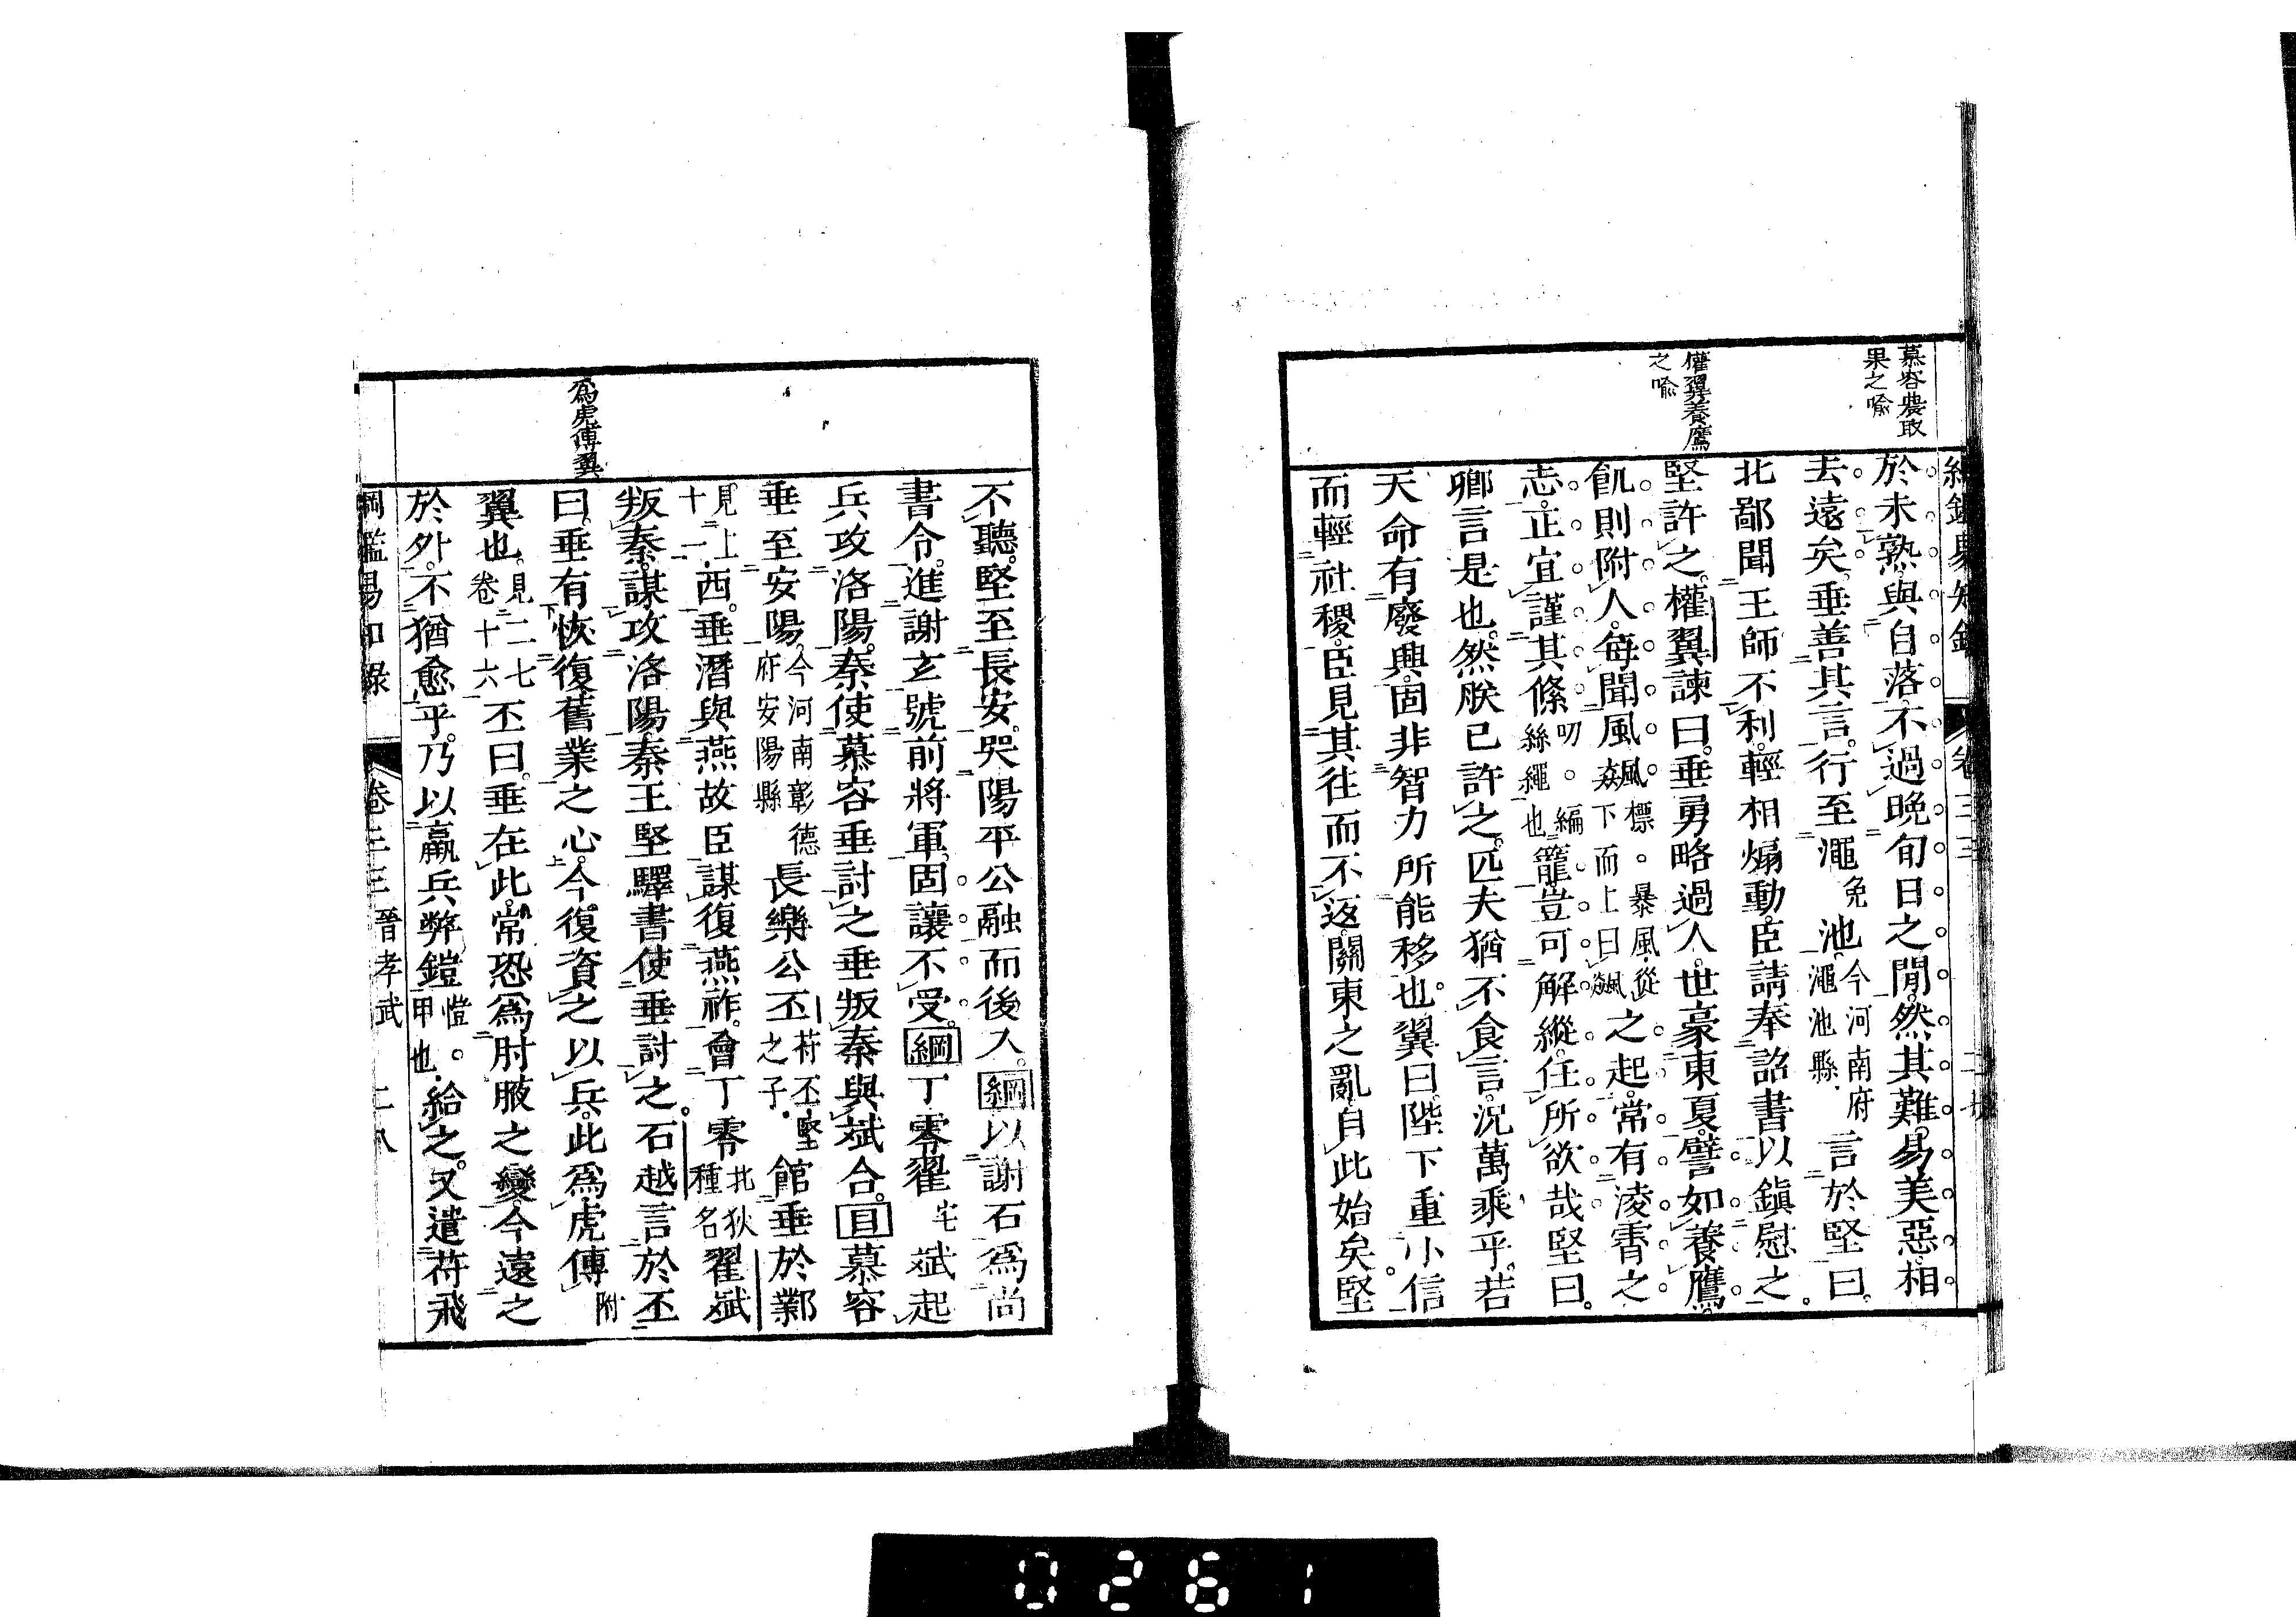 慕容農取
果之喩
權翼養鷹
之喩
於未熟與自落不過晚旬日之間然其難易美惡相
去遠矣垂善其言行至澠免池今河南府澠池縣言於堅曰
北鄙聞王師不利輕相煽動臣請奉詔書以鎭慰之
堅許之權翼諫曰垂勇略過人世豪東夏譬如養鷹
飢則附人每聞風飆標暴風從下而上曰飆之起常有淩霄之
志正宜謹其絛叨編絲繩也籠豈可解縱任所欲哉堅曰
卿言是也然朕已許之匹夫猶不食言況萬乘乎若
天命有廢興固非智力所能移也翼曰陛下重小信
而輕社稷臣見其往而不返關東之亂自此始矣堅
爲虎傅翼
不聽堅至長安哭陽平公融而後入綱以謝石爲尚
書令進謝玄號前將軍固讓不受綱丁零翟宅斌起
兵攻洛陽秦使慕容垂討之垂叛秦與斌合目慕容
垂至安陽今河南彰德府安陽縣長樂公丕苻丕堅之子館垂於鄴
見上十一西垂潛與燕故臣謀復燕祚會丁零北狄種名翟斌
叛秦謀攻洛陽秦王堅驛書使垂討之石越言於丕
曰垂有恢復舊業之心今復資之以兵此爲虎傅附
翼也見二七卷十六丕曰垂在此常恐爲肘腋之變今遠之
於外不猶愈乎乃以羸兵弊鎧愷甲也給之又遣苻飛
綱鑑易知錄 卷三三 晉孝武 二八
0261